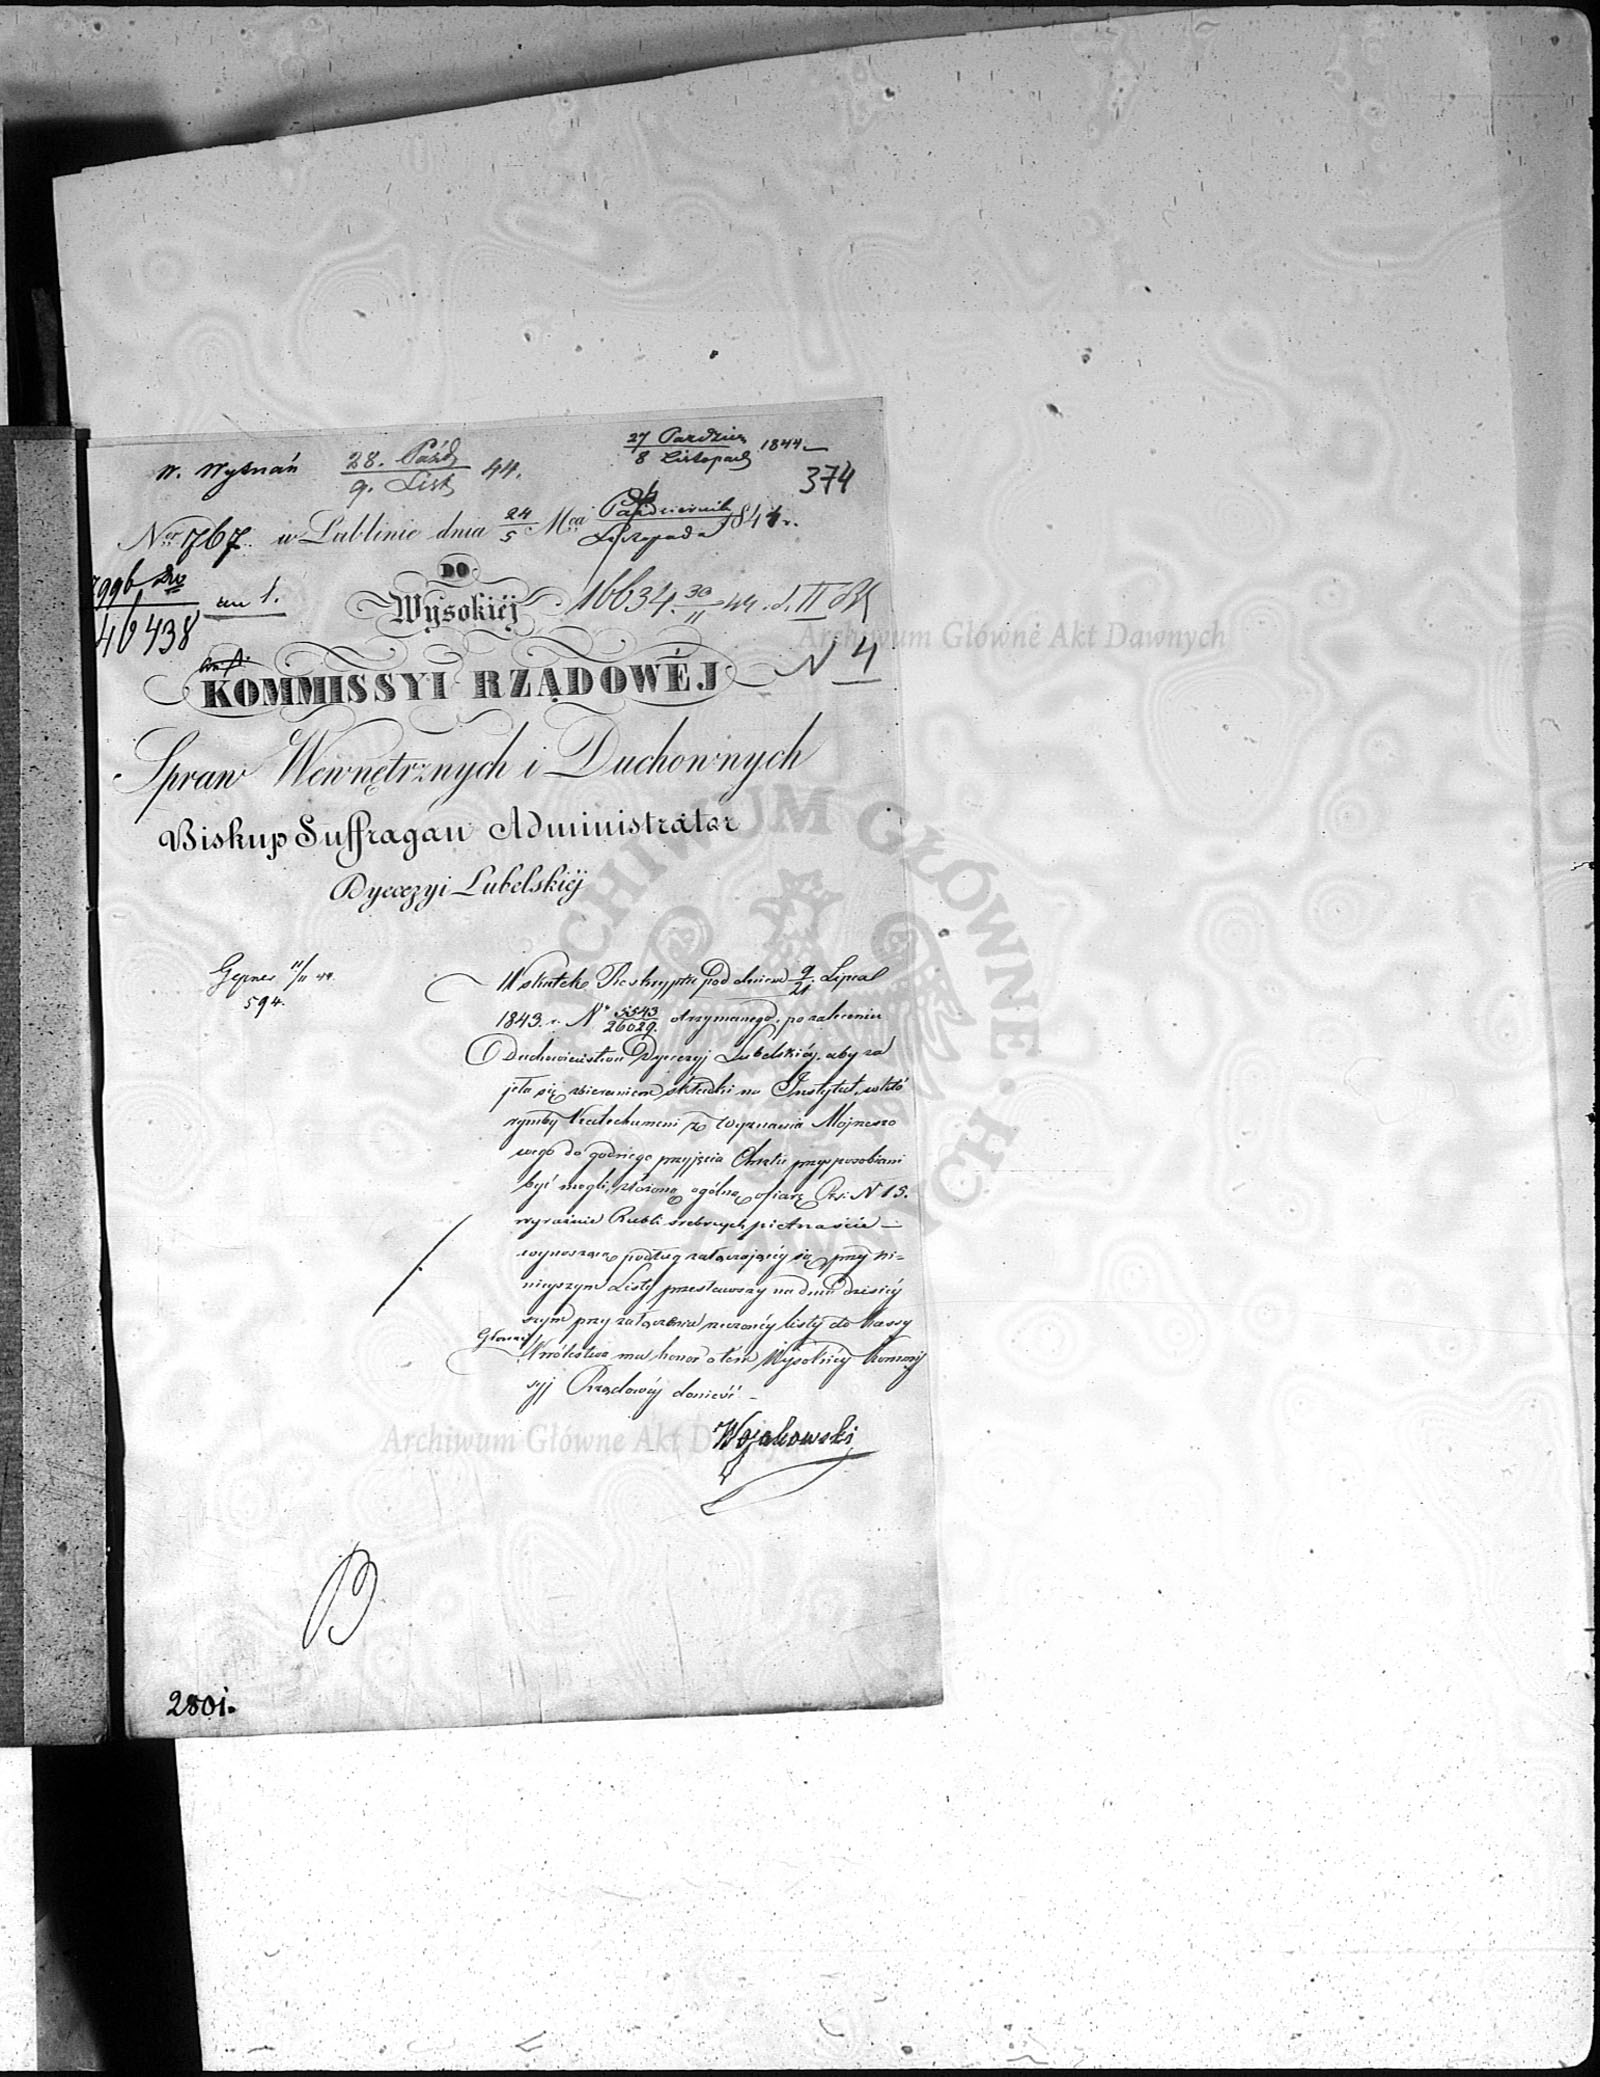 27 Paździer
8 Listopad 1844
W. Wyznań 28. Paźd 44.
9. List
374
Nr 767 w Lublinie dnia 24/5 Mca Październik/Listopada 1844 r.
DO
Wysokiéj
16634. 30/11 44. d. II
46438
an 1.
N 4
KOMMISSYI RZĄDOWÉJ
Spraw Wewnętrznych i Duchownych
Biskup Suffragan Administrator
Dyecezyi Lubelskiéj
Gepner 11/11 44.
594.
W skutek Reskryptu pod dniem 9/21 Lipca
1843. r. Nr 5543/26029. otrzymanego, po zaleceniu
Duchowieństwu Dyecezyj Lubelskiéj, aby za
jęła się zbieraniem składki na Instytut, w któ
rymby Katechumeni z Wyznania Mojżeszo
wego do godnego przyjęcia Chrztu przysposobiani
być mogli, złożoną ogólną ofiarę Rs: N 15.
wyraźnie Rubli srebrnych piętnaście —
wynoszącą podług załączającéj się przy ni=
nieyszym Listy przesławszy na dniu dzisiéj
szym przy załączeniu rzeczonéy listy do Kassy
Głównéj
Królestwa ma honor o tém Wysokiey Kommis
syj Rządowéy donieść. —
Wojakowski
2801.
Archiwum Główne Akt Dawnych
ARCHIWUM GŁÓWNE AKT DAWNYCH
Archiwum Główne Akt Dawnych